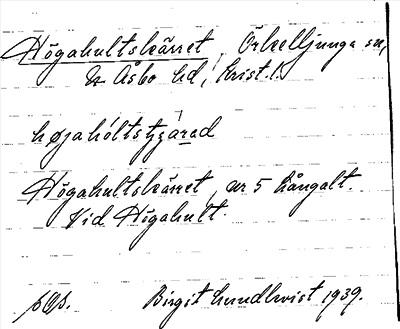 Högahultskärret, Örkelljunga sn,
N Åsbo hd, Krist. l.
Högahultskärret, ur 5 Långalt.
Vid Högahult.
Birgit Lundkvist 1939.